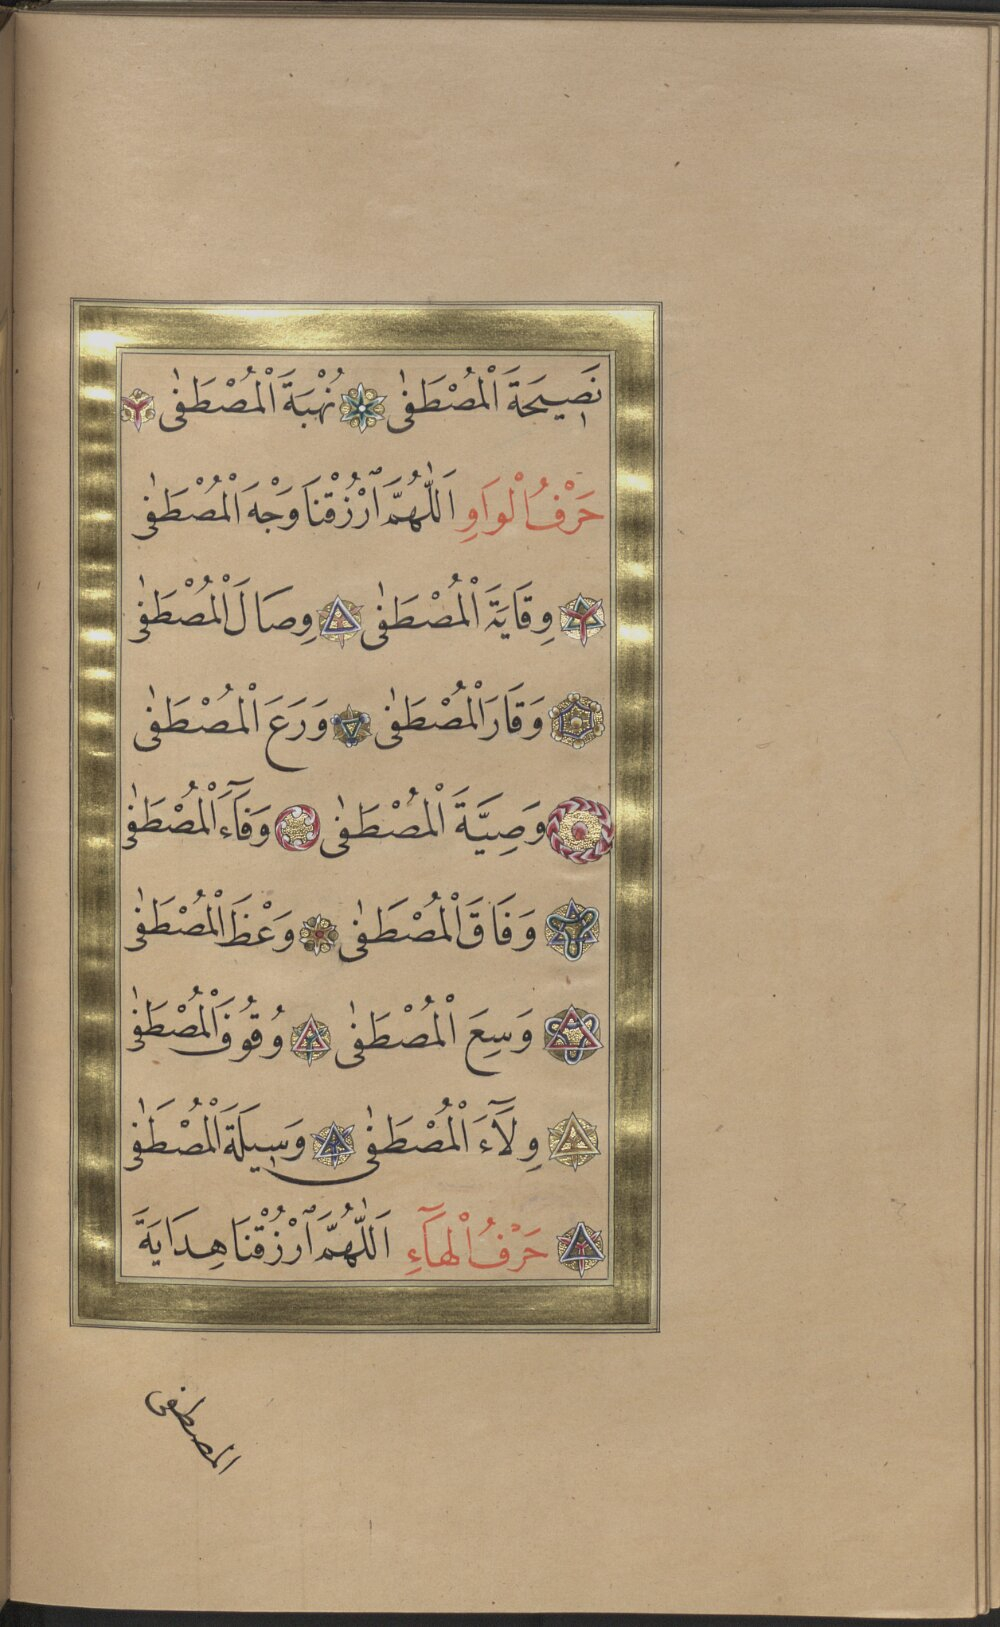 نَصِيحَةَ الْمُصْطَفٰى نُهْبَةَ الْمُصْطَفٰى
حَرْفُ الْوَاوِ اَللّٰهُمَّ ارْزُقْنَا وَجْهَ الْمُصْطَفٰى
وِقَايَةَ الْمُصْطَفٰى وِصَالَ الْمُصْطَفٰى
وَقَارَ الْمُصْطَفٰى وَرَعَ الْمُصْطَفٰى
وَصِيَّةَ الْمُصْطَفٰى وَفَآءَ الْمُصْطَفٰى
وَفَاقَ الْمُصْطَفٰى وَعْظَ الْمُصْطَفٰى
وَسِعَ الْمُصْطَفٰى وُقُوفَ الْمُصْطَفٰى
وِلَآءَ الْمُصْطَفٰى وَسِيلَةَ الْمُصْطَفٰى
حَرْفُ الْهَآءِ اَللّٰهُمَّ ارْزُقْنَا هِدَايَةَ
المصطفى